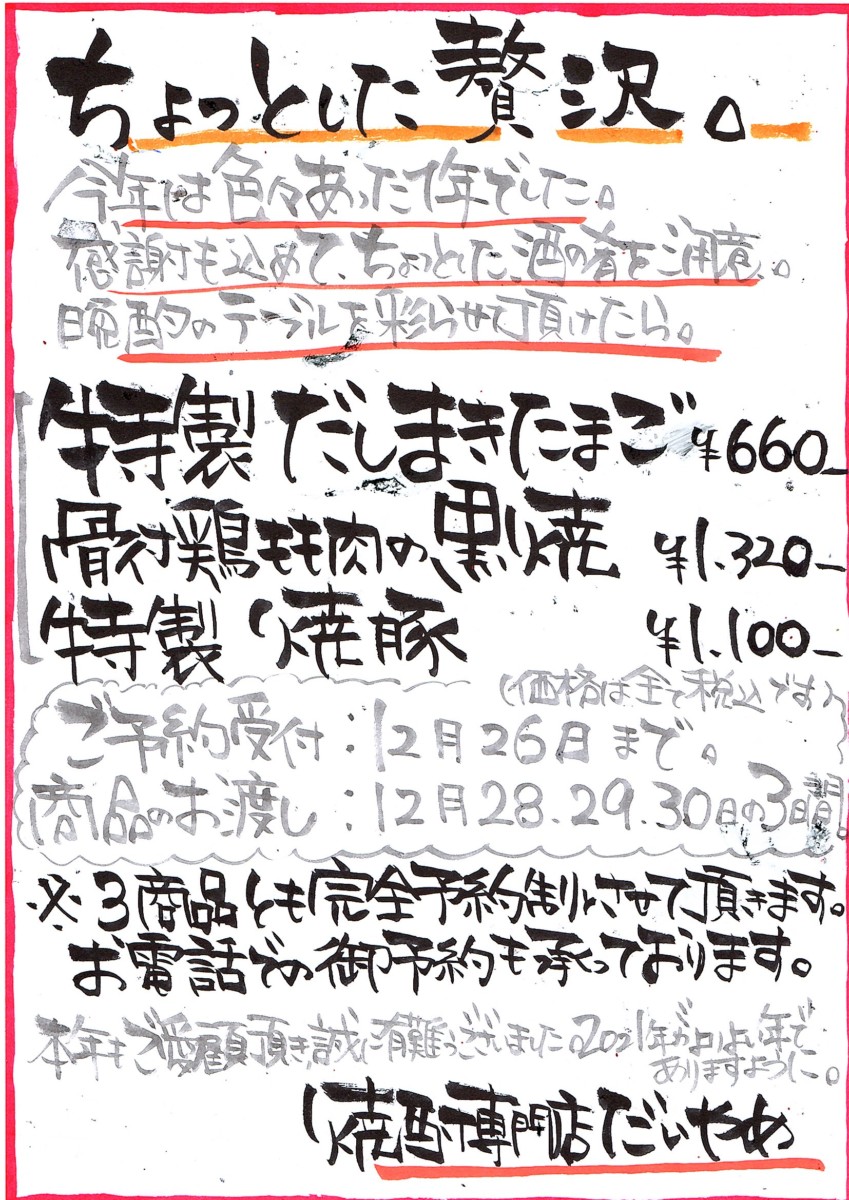 ちょっとした贅沢。
今年は色々あった1年でした。
感謝も込めて、ちょっとした酒の肴を用意。
晩酌のテーブルを彩らせて頂けたら。
特製だしまきたまご ¥660-
骨付鶏もも肉の黒焼 ¥1.320-
特製焼豚 ¥1.100-
(価格は全て税込です)
ご予約受付:12月26日まで。
商品のお渡し:12月28.29.30日の3日間。
※3商品とも完全予約制とさせて頂きます。
お電話での御予約も承っております。
本年もご愛顧頂き、誠に有難うございました。2021年がより良い年で
ありますように。
焼酎専門店だいやめ